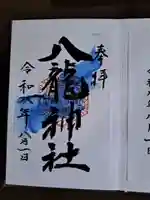 奉拝
八龍神社
令和八年八月一日